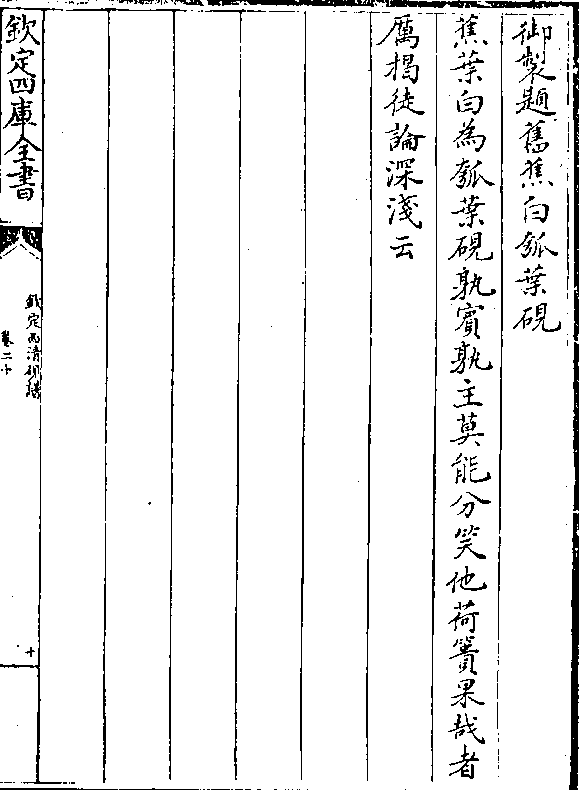 御製題舊蕉白瓠葉硯
蕉葉白為瓠葉硯孰賔孰主莫能分笑他荷蕢果哉者
厲揭徒論深淺云
欽定四庫全書
欽定西清硯譜
卷二十
十